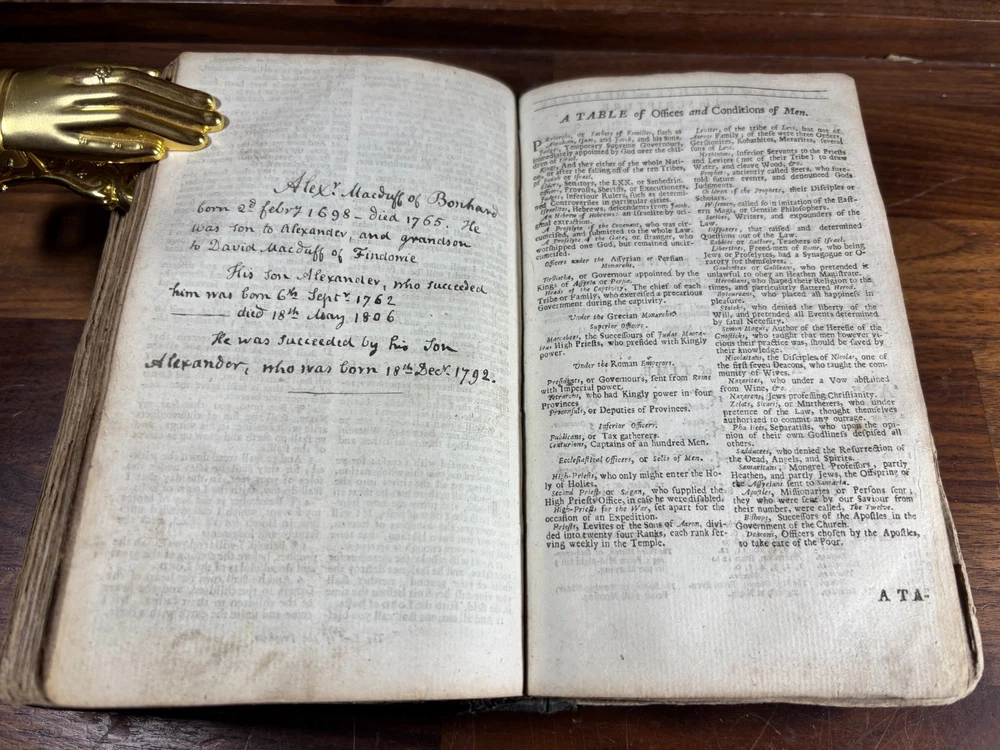 Alexr. Macduff of Bonhard
born 2d febry 1698 – died 1765. He
was son to Alexander, and grandson
to David Macduff of Findowie
His son Alexander, who succeeded
him was born 6th Septr. 1762
—— died 18th May 1806
He was succeeded by his son
Alexander, who was born 18th Decr. 1792.
A TABLE of Offices and Conditions of Men.
Patriarchs, or Fathers of Families, such as
Abraham, Isaac, and Jacob, and his sons.
Judges, Temporary Supreme Governours,
immediately appointed by God over the chil-
dren of Israel.
Kings, And they either of the whole Nati-
on, or after the falling off of the ten Tribes,
of Judah or Israel.
Elders, Senators, the LXX. or Sanhedrin.
Officers, Provosts, Sheriffs, or Executioners.
Judges, Inferiour Rulers, such as determi-
ned Controversies in particular cities.
Israelites, Hebrews, descendents from Jacob.
An Hebrew of Hebrews; an Israelite by ori-
ginal extraction.
A Proselyte of the Covenant, who was cir-
cumcised, and submitted to the whole Law.
A Proselyte of the Gate, or stranger, who
worshipped one God, but remained uncir-
cumcised.
Officers under the Assyrian or Persian
Monarchs.
Tirshatha, or Governour appointed by the
Kings of Assyria or Persia.
Heads of the Captivity, The chief of each
Tribe or Family, who exercised a precarious
Government during the captivity.
Under the Grecian Monarchs
Superior Officers.
Maccabees, the Successours of Judas Macca-
beus High Priests, who presided with Kingly
power.
Under the Roman Emperors.
Presidents, or Governours, sent from Rome
with Imperial power.
Tetrarchs, who had Kingly power in four
Provinces
Proconsuls, or Deputies of Provinces.
Inferior Officers.
Publicans, or Tax gatherers.
Centurions, Captains of an hundred Men.
Ecclesiastical Officers, or Sects of Men.
High-Priests, who only might enter the Ho-
ly of Holies.
Second Priests or Sagan, who supplied the
High Priests Office, in case he were disabled.
High-Priests for the War, set apart for the
occasion of an Expedition.
Priests, Levites of the Sons of Aaron, divi-
ded into twenty four Ranks, each rank ser-
ving weekly in the Temple.
Levites, of the tribe of Levi, but not of
Aarons Family; of these were three Orders,
Gershonites, Kohathites, Merarites, several
sons of Levi.
Nethinims, Inferior Servants to the Priests
and Levites (not of their Tribe) to draw
Water, and cleave Wood, &c.
Prophets, anciently called Seers, who fore-
told future events, and denounced Gods
Judgments.
Children of the Prophets, their Disciples or
Scholars.
Wisemen, called so in imitation of the East-
ern Magi, or Gentile Philosophers.
Scribes, Writers, and expounders of the
Law.
Disputers, that raised and determined
Questions out of the Law.
Rabbies or Doctors, Teachers of Israel.
Libertines, Freed-men of Rome, who being
Jews or Proselytes, had a Synagogue or O-
ratory for themselves.
Gaulonites or Galileans, who pretended it
unlawful to obey an Heathen Magistrate.
Herodians, who shaped their Religion to the
times, and particularly flattered Herod.
Epicureans, who placed all happiness in
pleasure.
Stoicks, who denied the liberty of the
Will, and pretended all Events determined
by fatal Necessity.
Simon Magus, Author of the Heresie of the
Gnosticks, who taught that men however vi-
cious their practice was, should be saved by
their knowledge.
Nicolaitans, the Disciples of Nicolas, one of
the first seven Deacons, who taught the com-
munity of Wives.
Nazarites, who under a Vow abstained
from Wine, &c.
Nazarens, Jews professing Christianity.
Zelots, Sicarii, or Murtherers, who under
pretence of the Law, thought themselves
authorized to commit any outrage.
Pharisees, Separatists, who upon the opi-
nion of their own Godliness despised all
others.
Sadducees, who denied the Resurrection of
the Dead, Angels, and Spirits.
Samaritans, Mongrel Professors, partly
Heathen, and partly Jews, the Offspring of
the Assyrians sent to Samaria.
Apostles, Missionaries or Persons sent;
they who were sent by our Saviour from
their number, were called, The Twelve.
Bishops, Successors of the Apostles in the
Government of the Church.
Deacons, Officers chosen by the Apostles,
to take care of the Poor.
A TA-